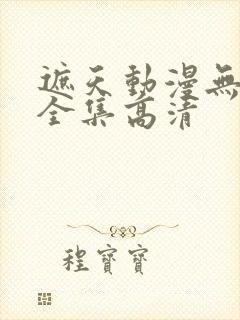 遮天動漫無
全集高清
程寶寶